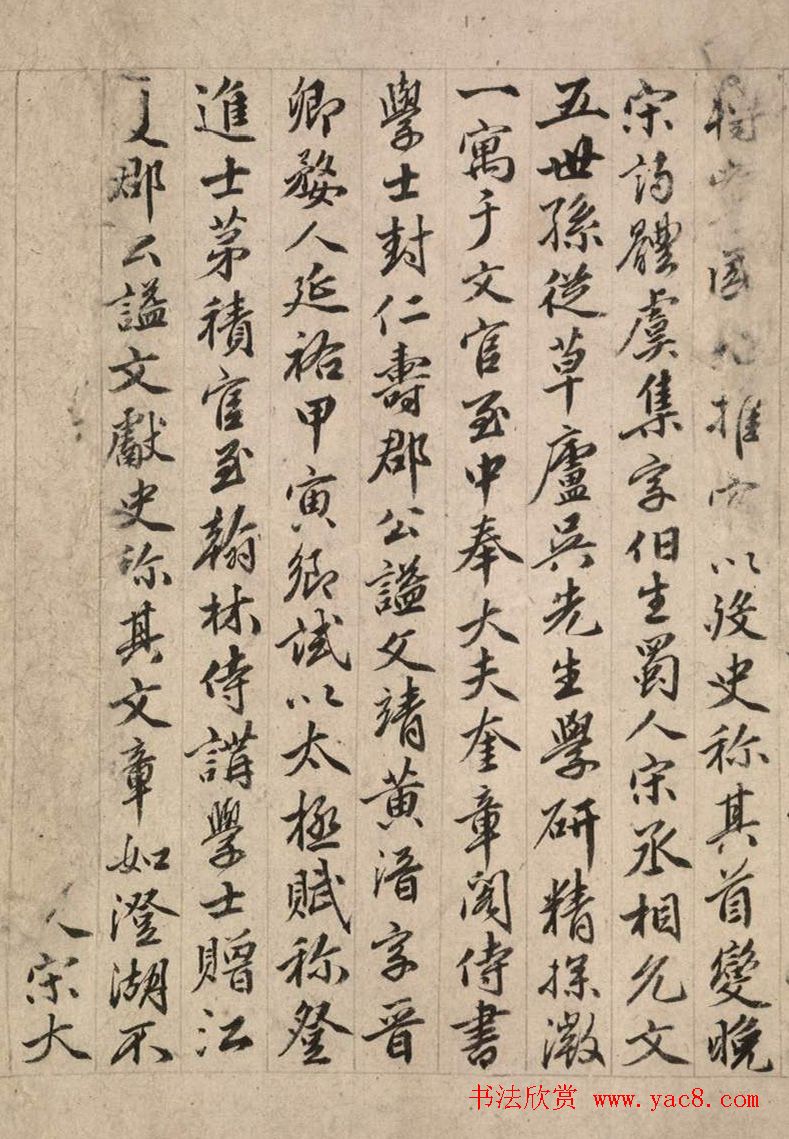 國推以後史称其首變晚
宋詩體虞集字伯生蜀人宋丞相允文
五世孫從草廬吳先生學研精探微
一寓于文官至中奉大夫奎章閣侍書
學士封仁壽郡公謚文靖黄溍字晋
卿婺人延祐甲寅鄉試以太極賦称登
進士苐積官至翰林侍講學士贈江
郡公謚文獻史称其文章如澄湖不
宋大
书法欣赏 www.yac8.com